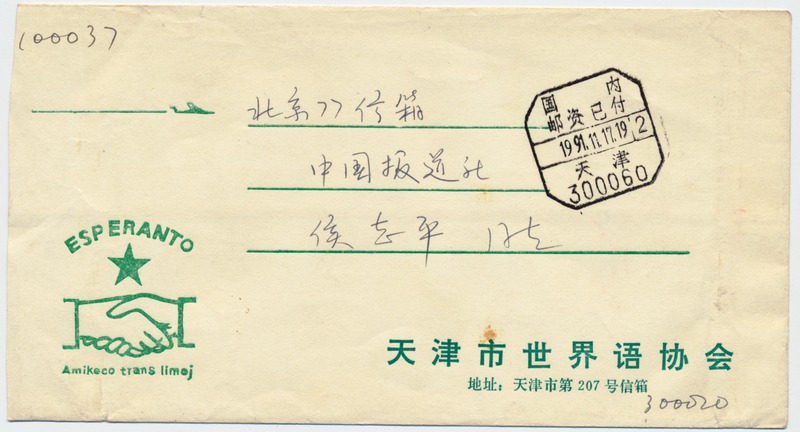 100037
北京77信箱
中国报道社
侯志平 同志
国内
邮资已付
1991.11.17.19 2
天津
300060
ESPERANTO
Amikeco trans limoj
天津市世界语协会
地址：天津市第207号信箱
300020